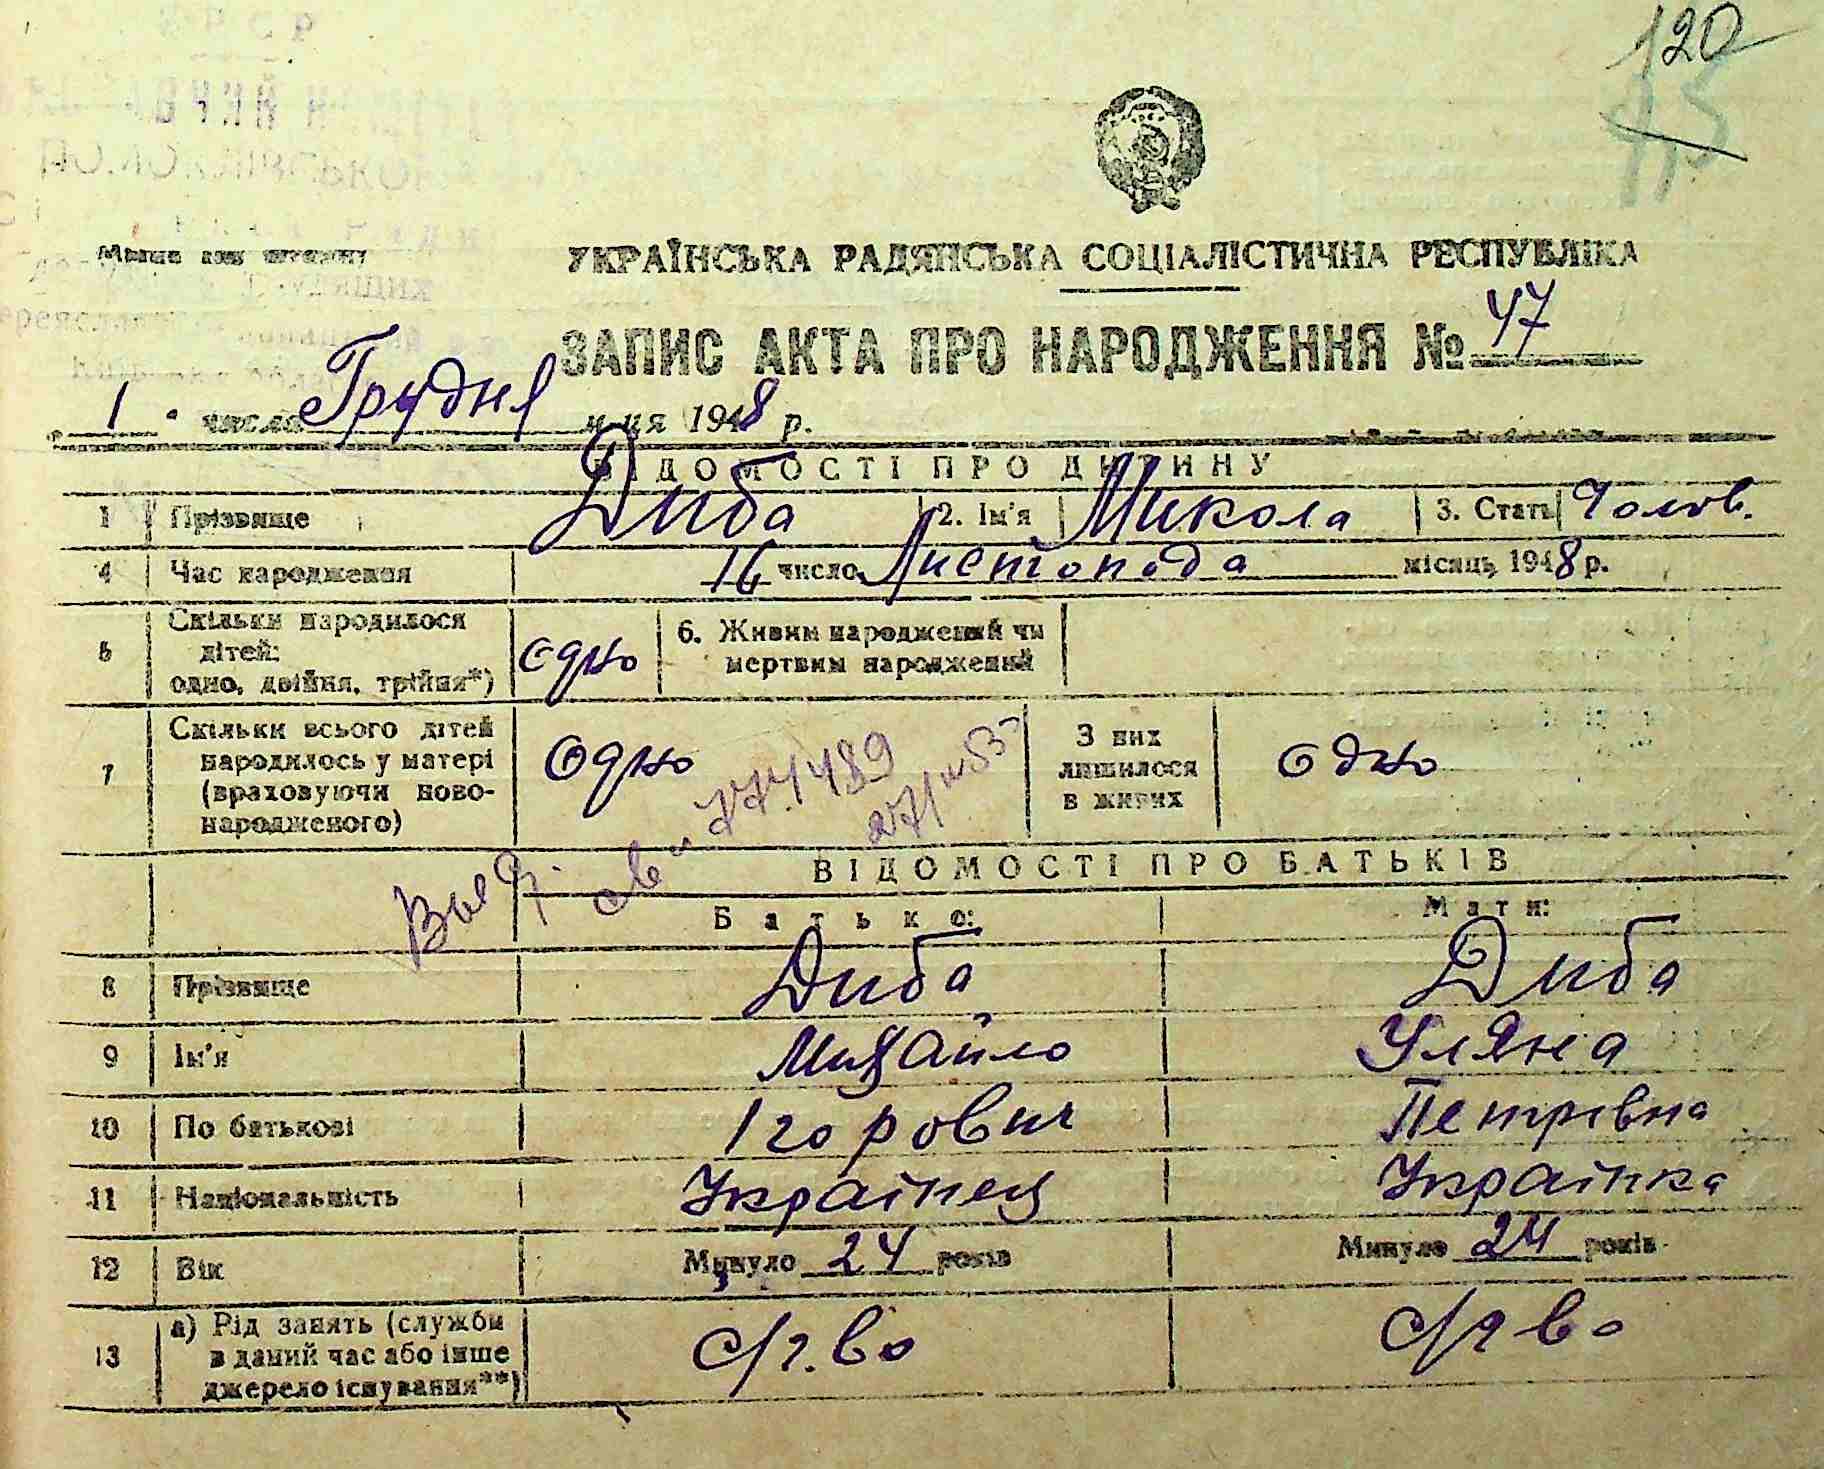 120
УКРАЇНСЬКА РАДЯНСЬКА СОЦІАЛІСТИЧНА РЕСПУБЛІКА
ЗАПИС АКТА ПРО НАРОДЖЕННЯ № 47
1 " число Грудня м-ця 1948 р.
ВІДОМОСТІ ПРО ДИТИНУ
1 Прізвище Диба 2. Ім'я Микола 3. Стать Чолов.
4 Час народження 16 число Листопада місяць 1948 р.
5 Скільки народилося дітей: одно, двійня, трійня*) одно 6. Живим народжений чи мертвим народжений
7 Скільки всього дітей народилось у матері (враховуючи новонародженого) Одно З них лишилося в живих одно
ВІДОМОСТІ ПРО БАТЬКІВ
Батько: Мати:
8 Прізвище Диба Диба
9 Ім'я Михайло Уляна
10 По батькові Ігорович Петрівна
11 Національність Українец Українка
12 Вік Минуло 24 років Минуло 24 років
13 а) Рід занять (служби в даний час або інше джерело існування**) с/г.во с/г во